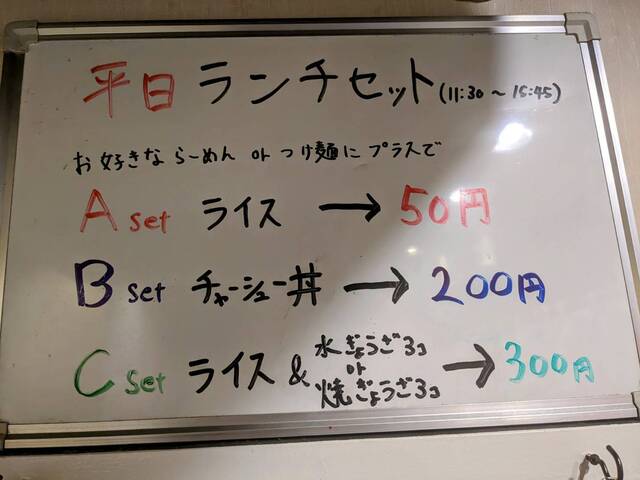 平日 ランチセット (11:30 ~ 15:45)
お好きな らーめん or つけ麺に プラスで
A set ライス → 50円
B set チャーシュー丼 → 200円
C set ライス & 水ぎょうざ3コ or 焼ぎょうざ3コ → 300円